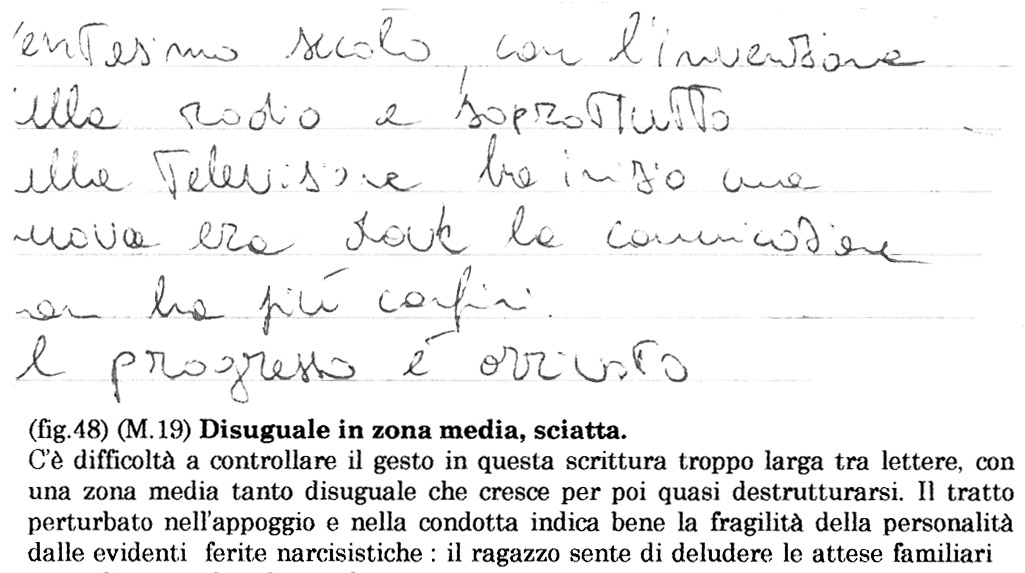 entesimo secolo, con l'invenzione
ella radio e soprattutto
ella televisione ha inizio una
nuova era dove la comunicazione
on ha più confini.
l progresso è arrivato
(fig.48) (M.19) Disuguale in zona media, sciatta.
C'è difficoltà a controllare il gesto in questa scrittura troppo larga tra lettere, con
una zona media tanto disuguale che cresce per poi quasi destrutturarsi. Il tratto
perturbato nell'appoggio e nella condotta indica bene la fragilità della personalità
dalle evidenti ferite narcisistiche : il ragazzo sente di deludere le attese familiari